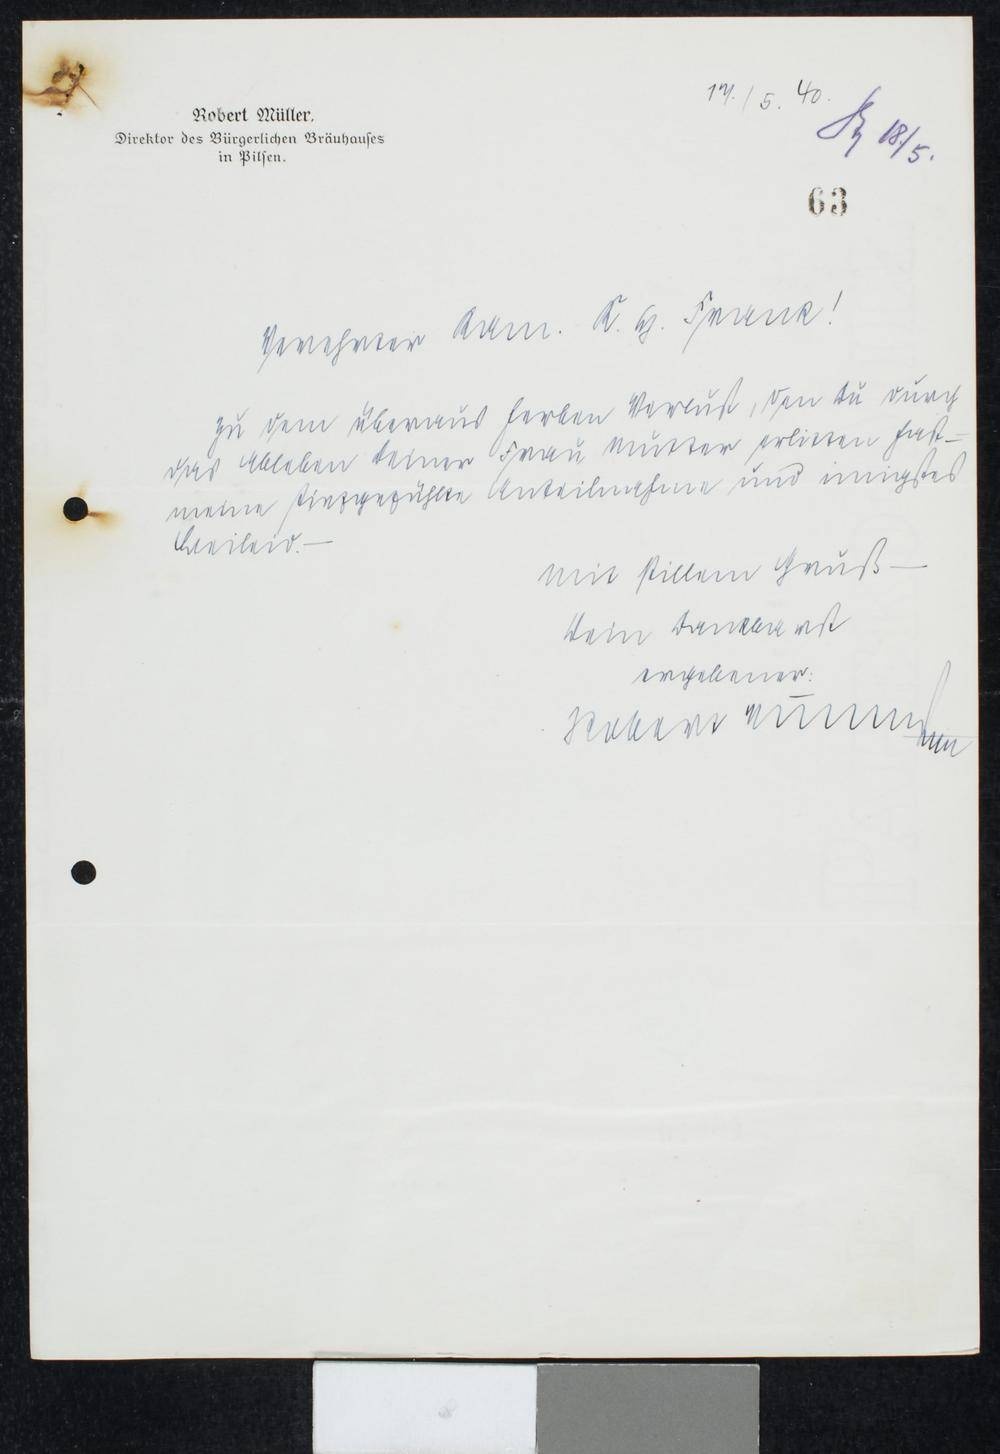 Robert Müller,
Direktor des Bürgerlichen Bräuhauses
in Pilsen.
17./5. 40.
18/5.
63
Verehrter Kam. K. H. Frank!
Zu dem überaus herben Verlust, den Du durch
das Ableben Deiner Frau Mutter erlitten hast –
meine tiefgefühlte Anteilnahme und innigstes
Beileid. –
Mit stillem Gruß –
Dein dankbarst
ergebener:
Robert Müller